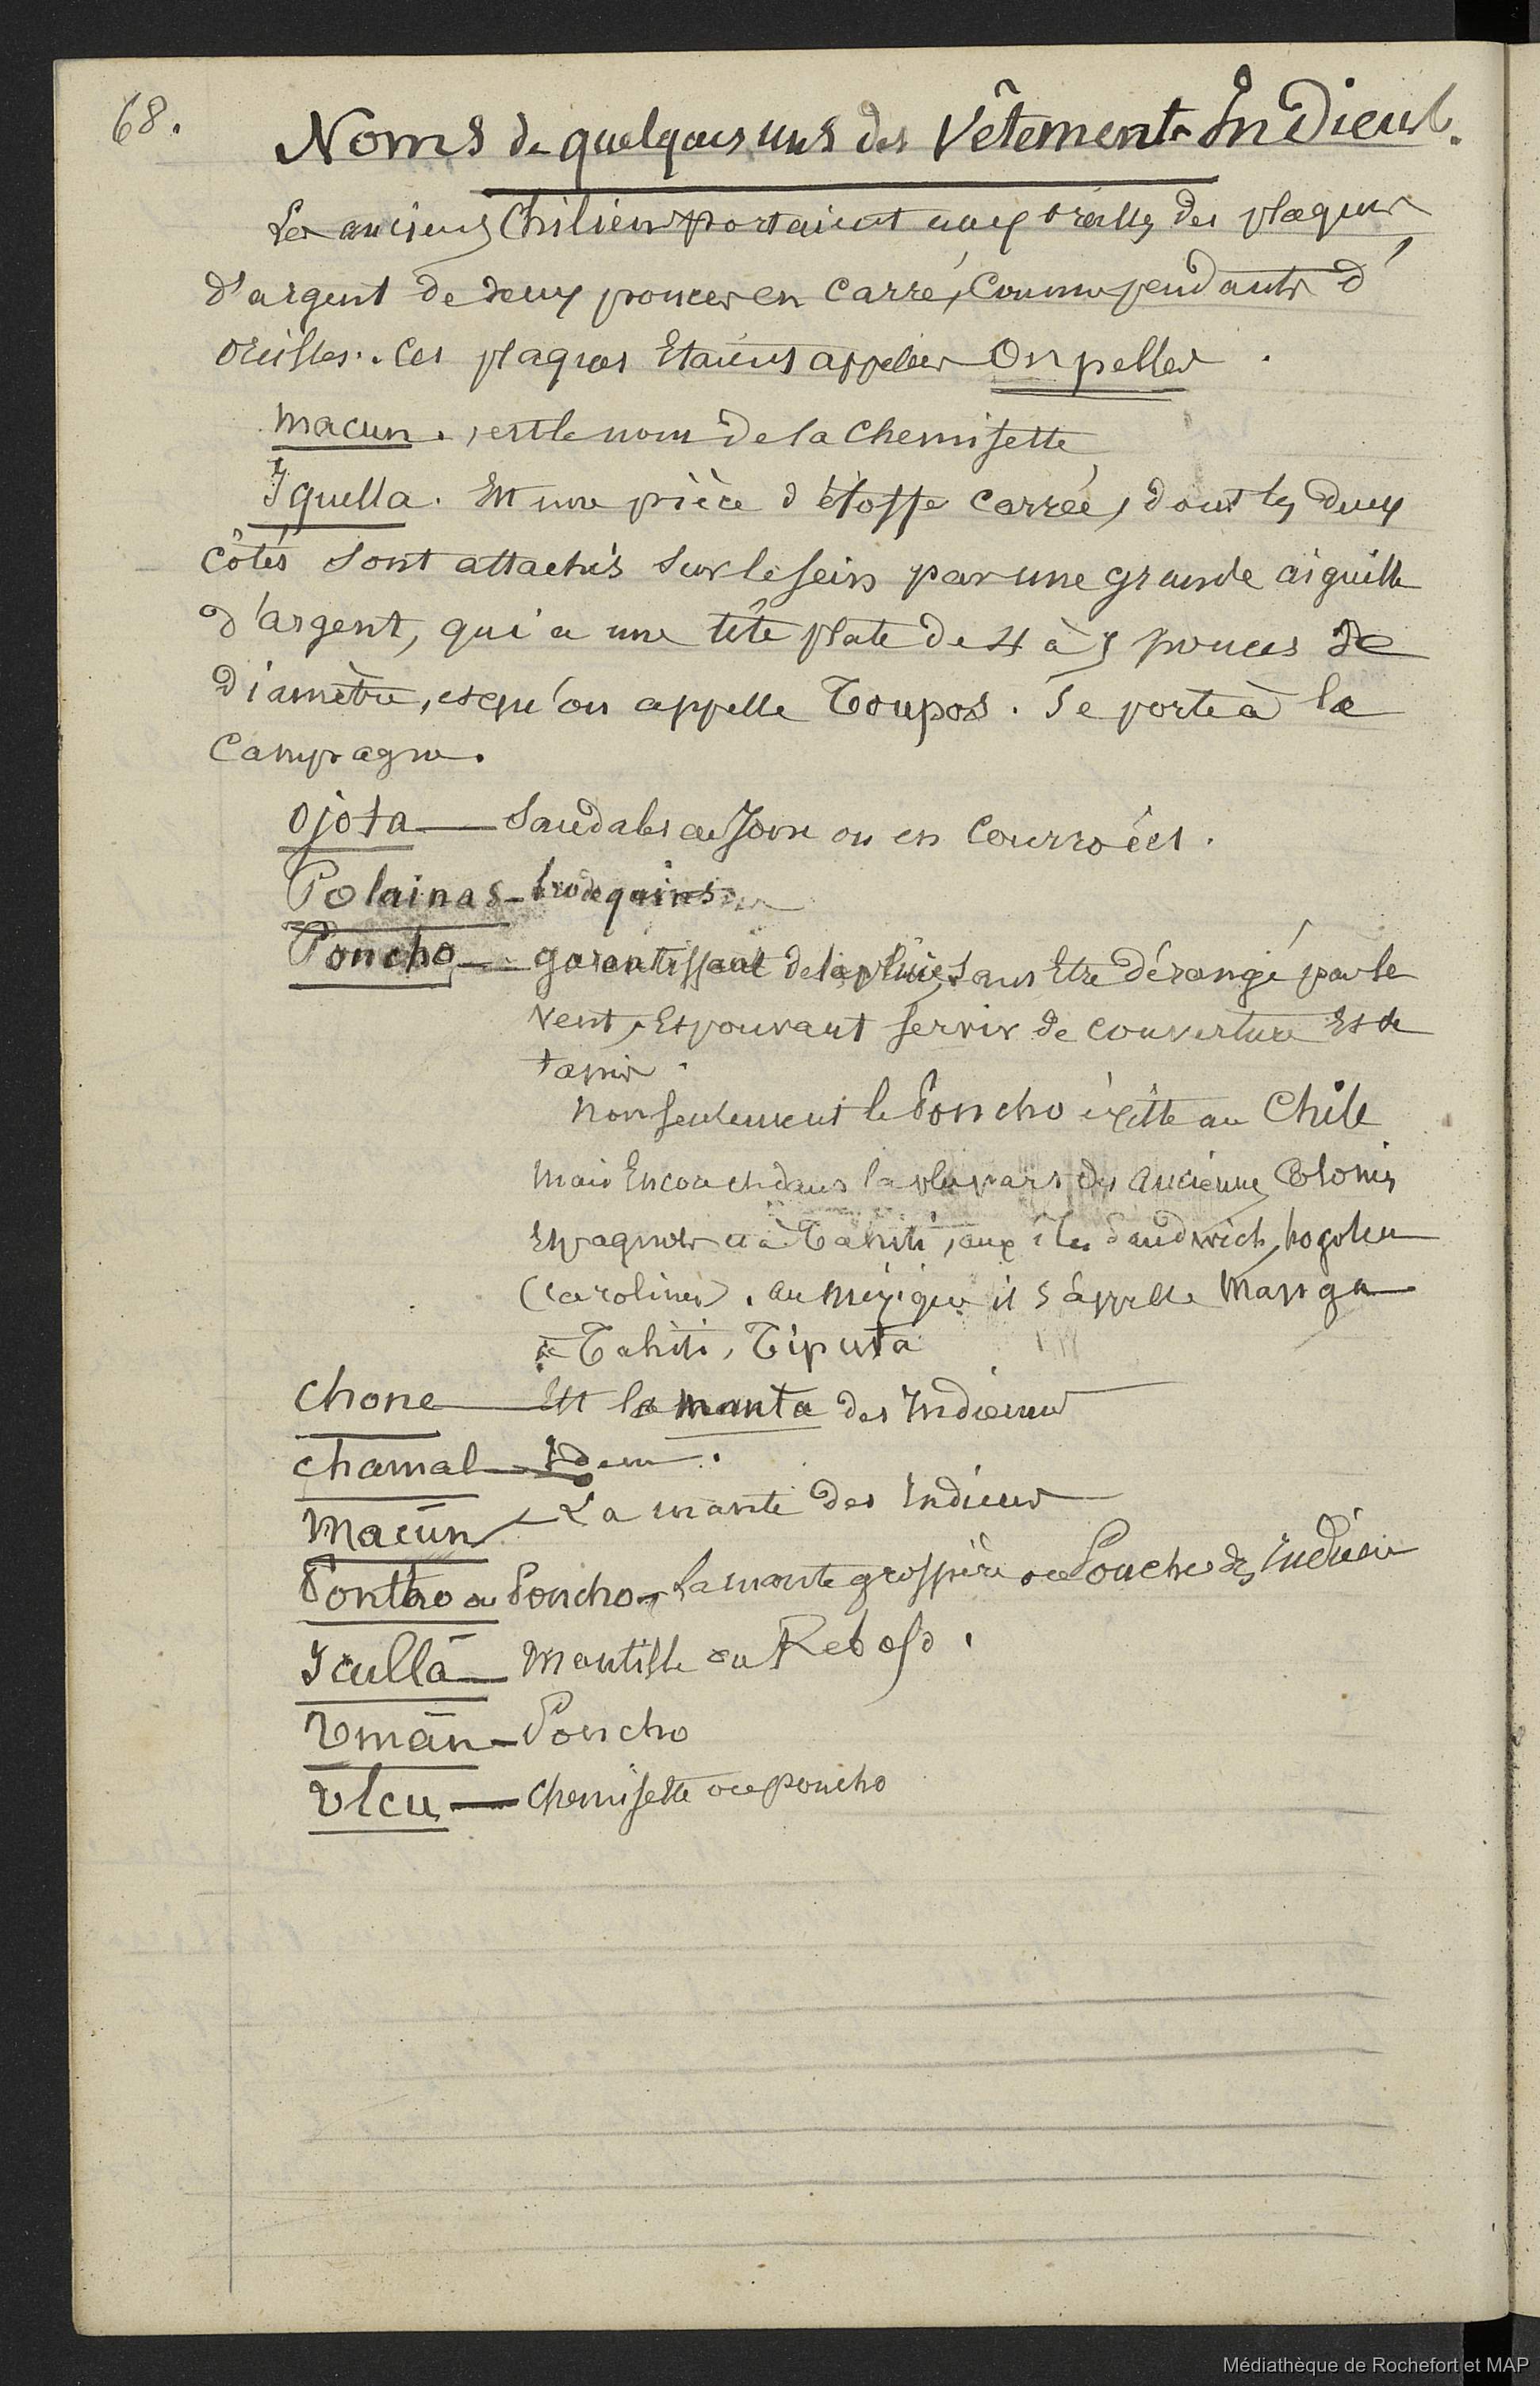 68.
Noms de quelques uns des Vêtements Indiens.
Les anciens Chiliens portaient aux oreilles, des plaques
d'argent de deux pouces en carré, Comme pendants d'
oreilles. Ces plaques Etaient appelées Onpelles.
Macun. est le nom de la Chemisette
Iquella. Est une pièce d'étoffe carrée, dont les deux
côtés sont attachés sur le sein par une grande aiguille
d'argent, qui a une tête plate de 4 à 5 pouces de
diamètre, et qu'on appelle Toupos. Se porte à la
Campagne.
Ojota — Sandales ou en Courroées.
Polainas — brodequins
Poncho — garantissant de la pluie, sans Etre dérangé par le
vent, Et pouvant servir de couverture Et de
tapis.
Non seulement le Poncho éxiste au Chile
Mais Encore dans la plupart des anciennes Colonies
Espagnoles et à Tahiti, aux îles Sandwich, hogoleu
(Carolines). Au Méxique il s'appelle Manga
à Tahiti, Tiputa
Chone — Est la manta des Indiennes
Chamal — Idem.
Macün — La mante des Indiens
Ponthro ou Poncho — La mante grossière ou Poncho des Indiens
Icullā — Mantille ou Reboso.
Vmān — Poncho
Vlcu — Chemisette ou poncho
Médiathèque de Rochefort et MAP